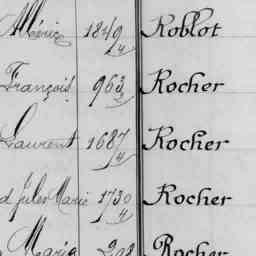 Méric 1849/4 Roblot
François 963/2 Rocher
Laurent 1687/4 Rocher
d Jules Marie 1730/4 Rocher
Marie 203 Rocher